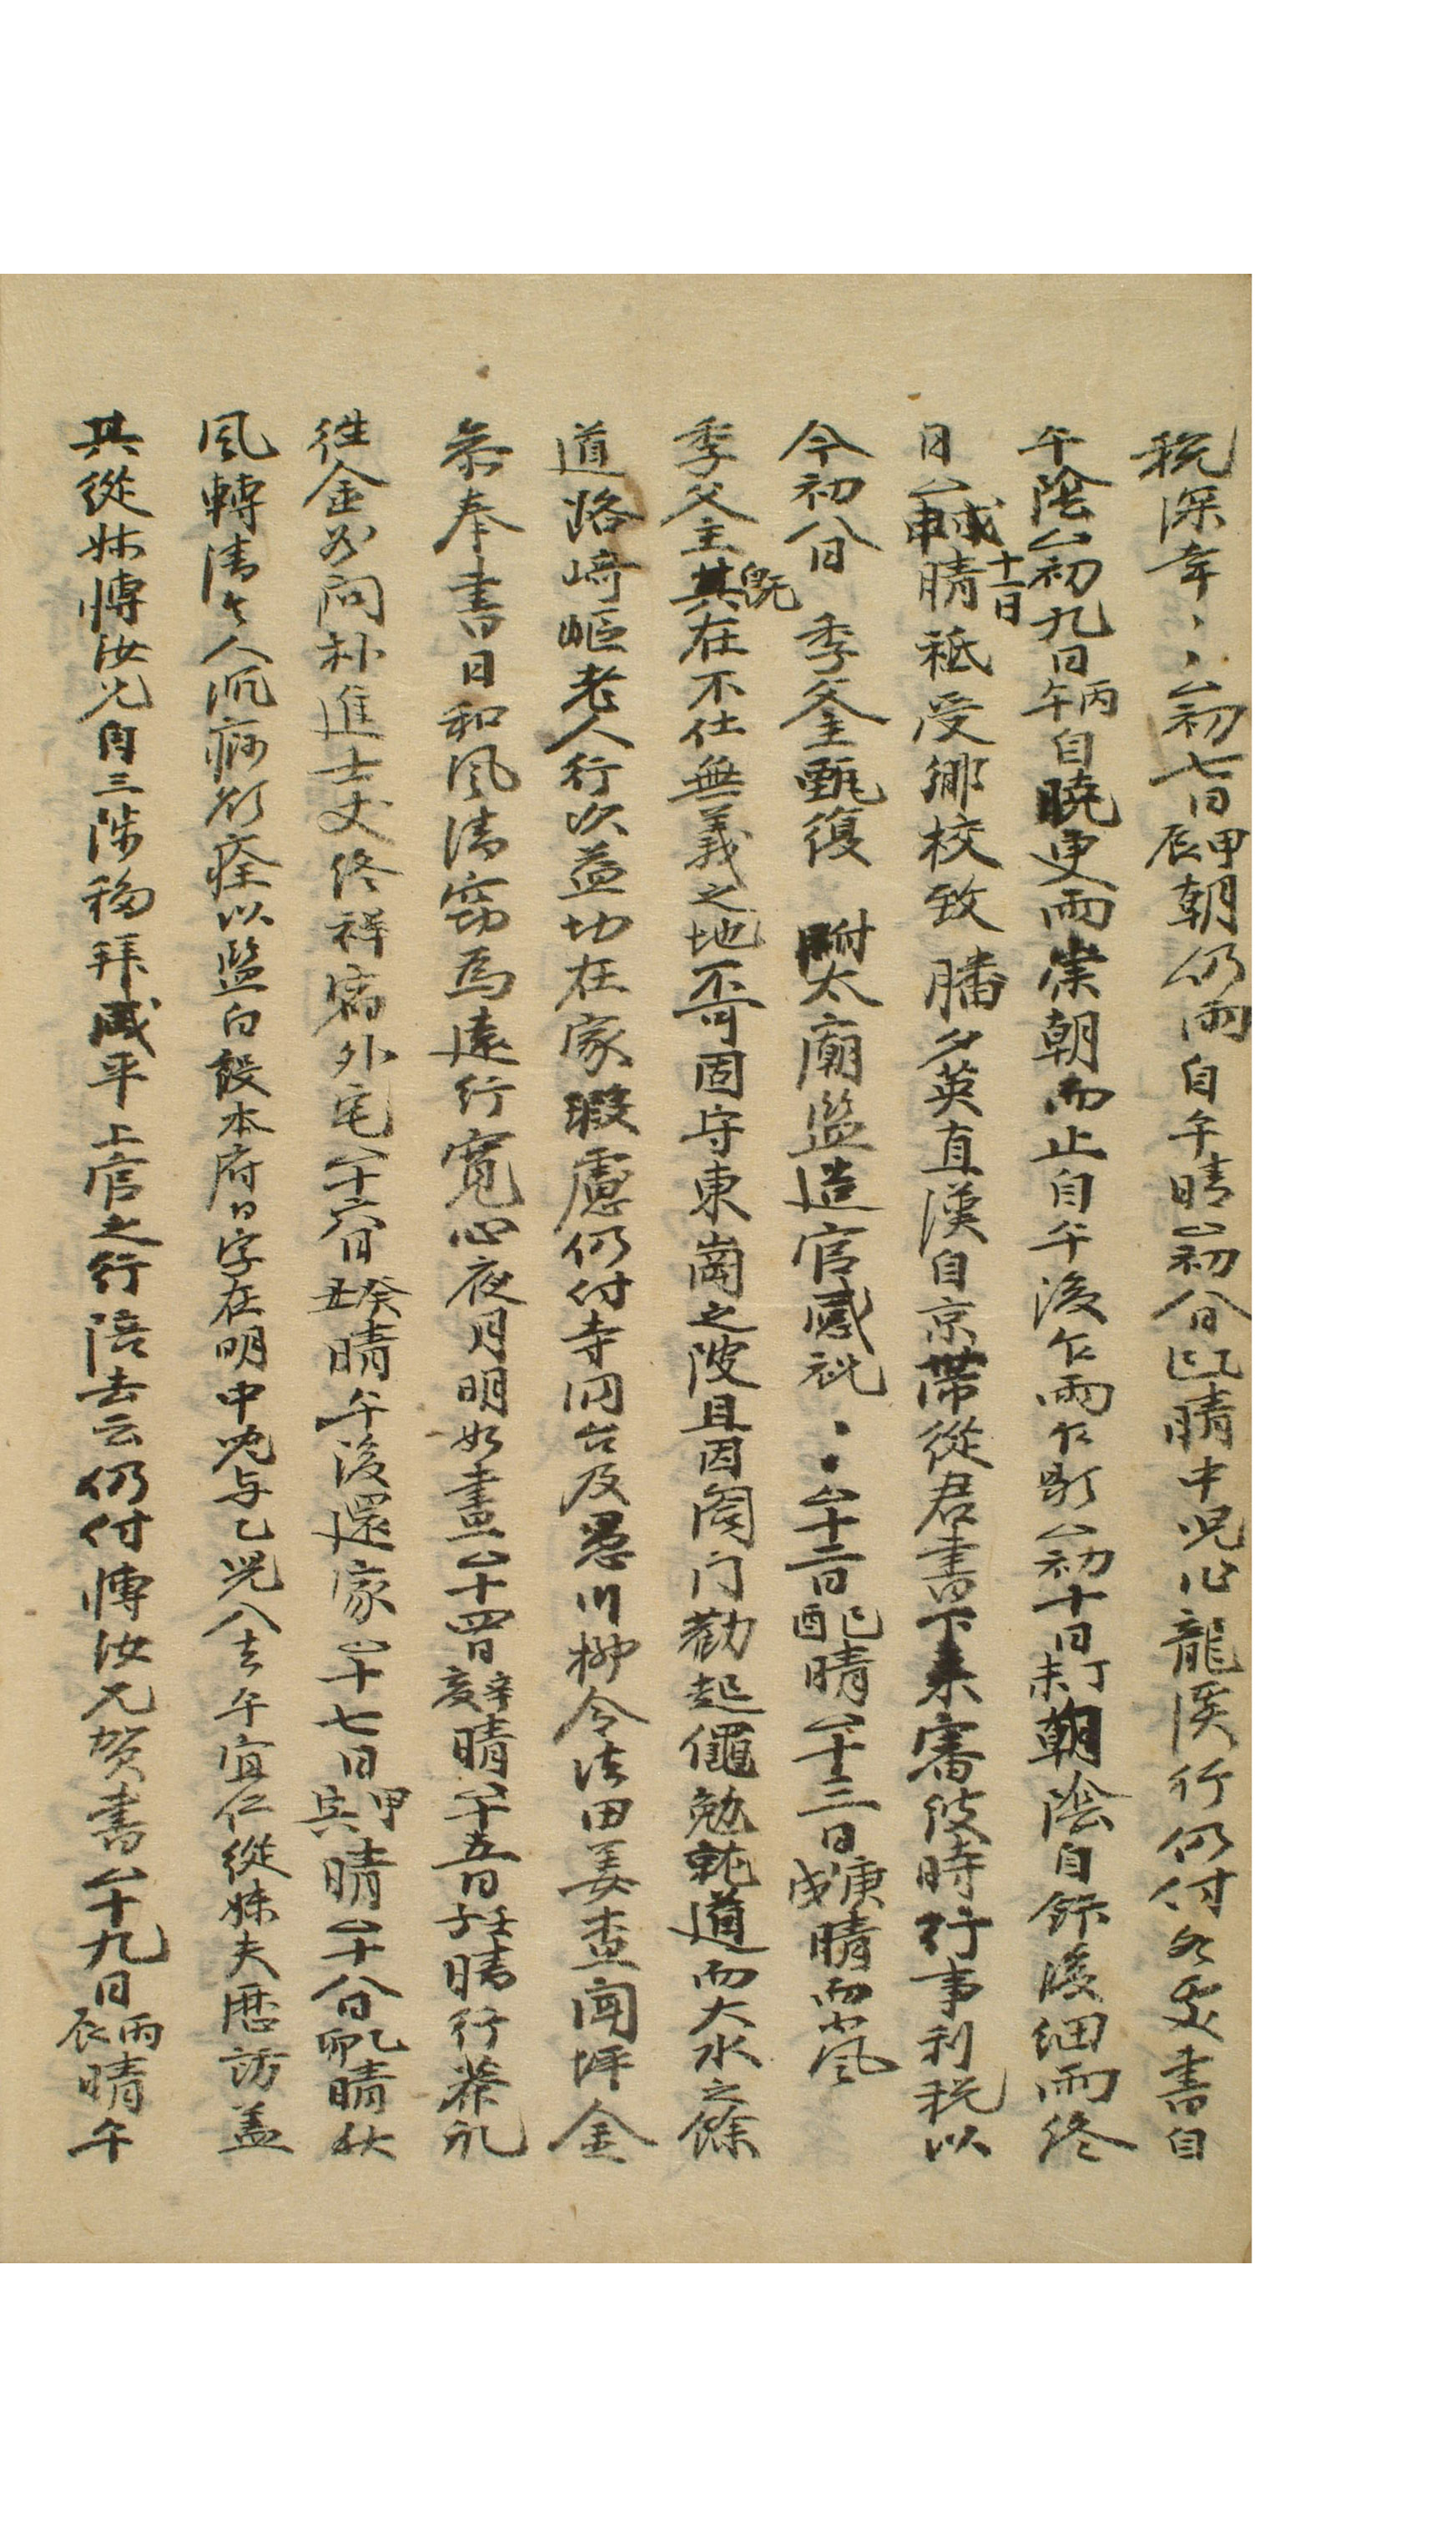 税深幸〻〻△初七日甲辰朝仍雨自午晴△初八日乙巳晴中児作龍溪行仍付各處書自
午陰△初九日丙午自曉更雨崇朝而止自午後乍雨乍霽△初十日丁未朝陰自餘後細雨終
日△十一日戊申晴祗受鄕校致膰夕英直漢自京帶從君書下来審伊時行事利税以
今初八日 季父主甄復 附太廟監造官感祝〻〻△十二日己酉晴△十三日庚戌晴而小風
季父主其既在不仕無義之地不可固守東崗之陂且因闔门勸起僶勉就道而大水之餘
道路崎嶇老人行次益切在家瑕慮仍付寺
洞台及愚川柳令法田姜査闻坪金
忝奉書日和風清窃為遠行寬心夜月明如晝△十四日辛亥晴△十五日壬子晴行茶礼
徃金 問朴進士丈終祥宿外宅△十六日癸丑晴午後還家△十七日甲寅晴△十八日乙卯晴仗
風轉清令人沉病欲痊以監 設本府日字在明中児与乙児入去午宜仁從妹夫歷訪盖
其從妹博汝兄自三陟移拜咸平上官之行陪去云仍付博汝兄贺書△十九日丙辰晴午